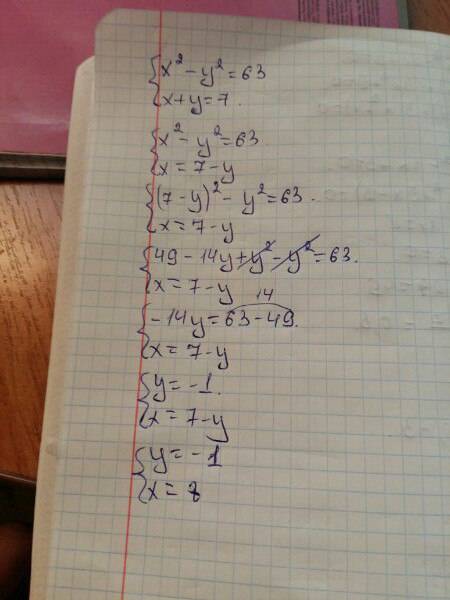 x² - y² = 63
x + y = 7.
x² - y² = 63.
x = 7 - y
(7 - y)² - y² = 63.
x = 7 - y
49 - 14y + y² - y² = 63.
x = 7 - y
14
-14y = 63 - 49.
x = 7 - y
y = -1.
x = 7 - y
y = -1
x = 8